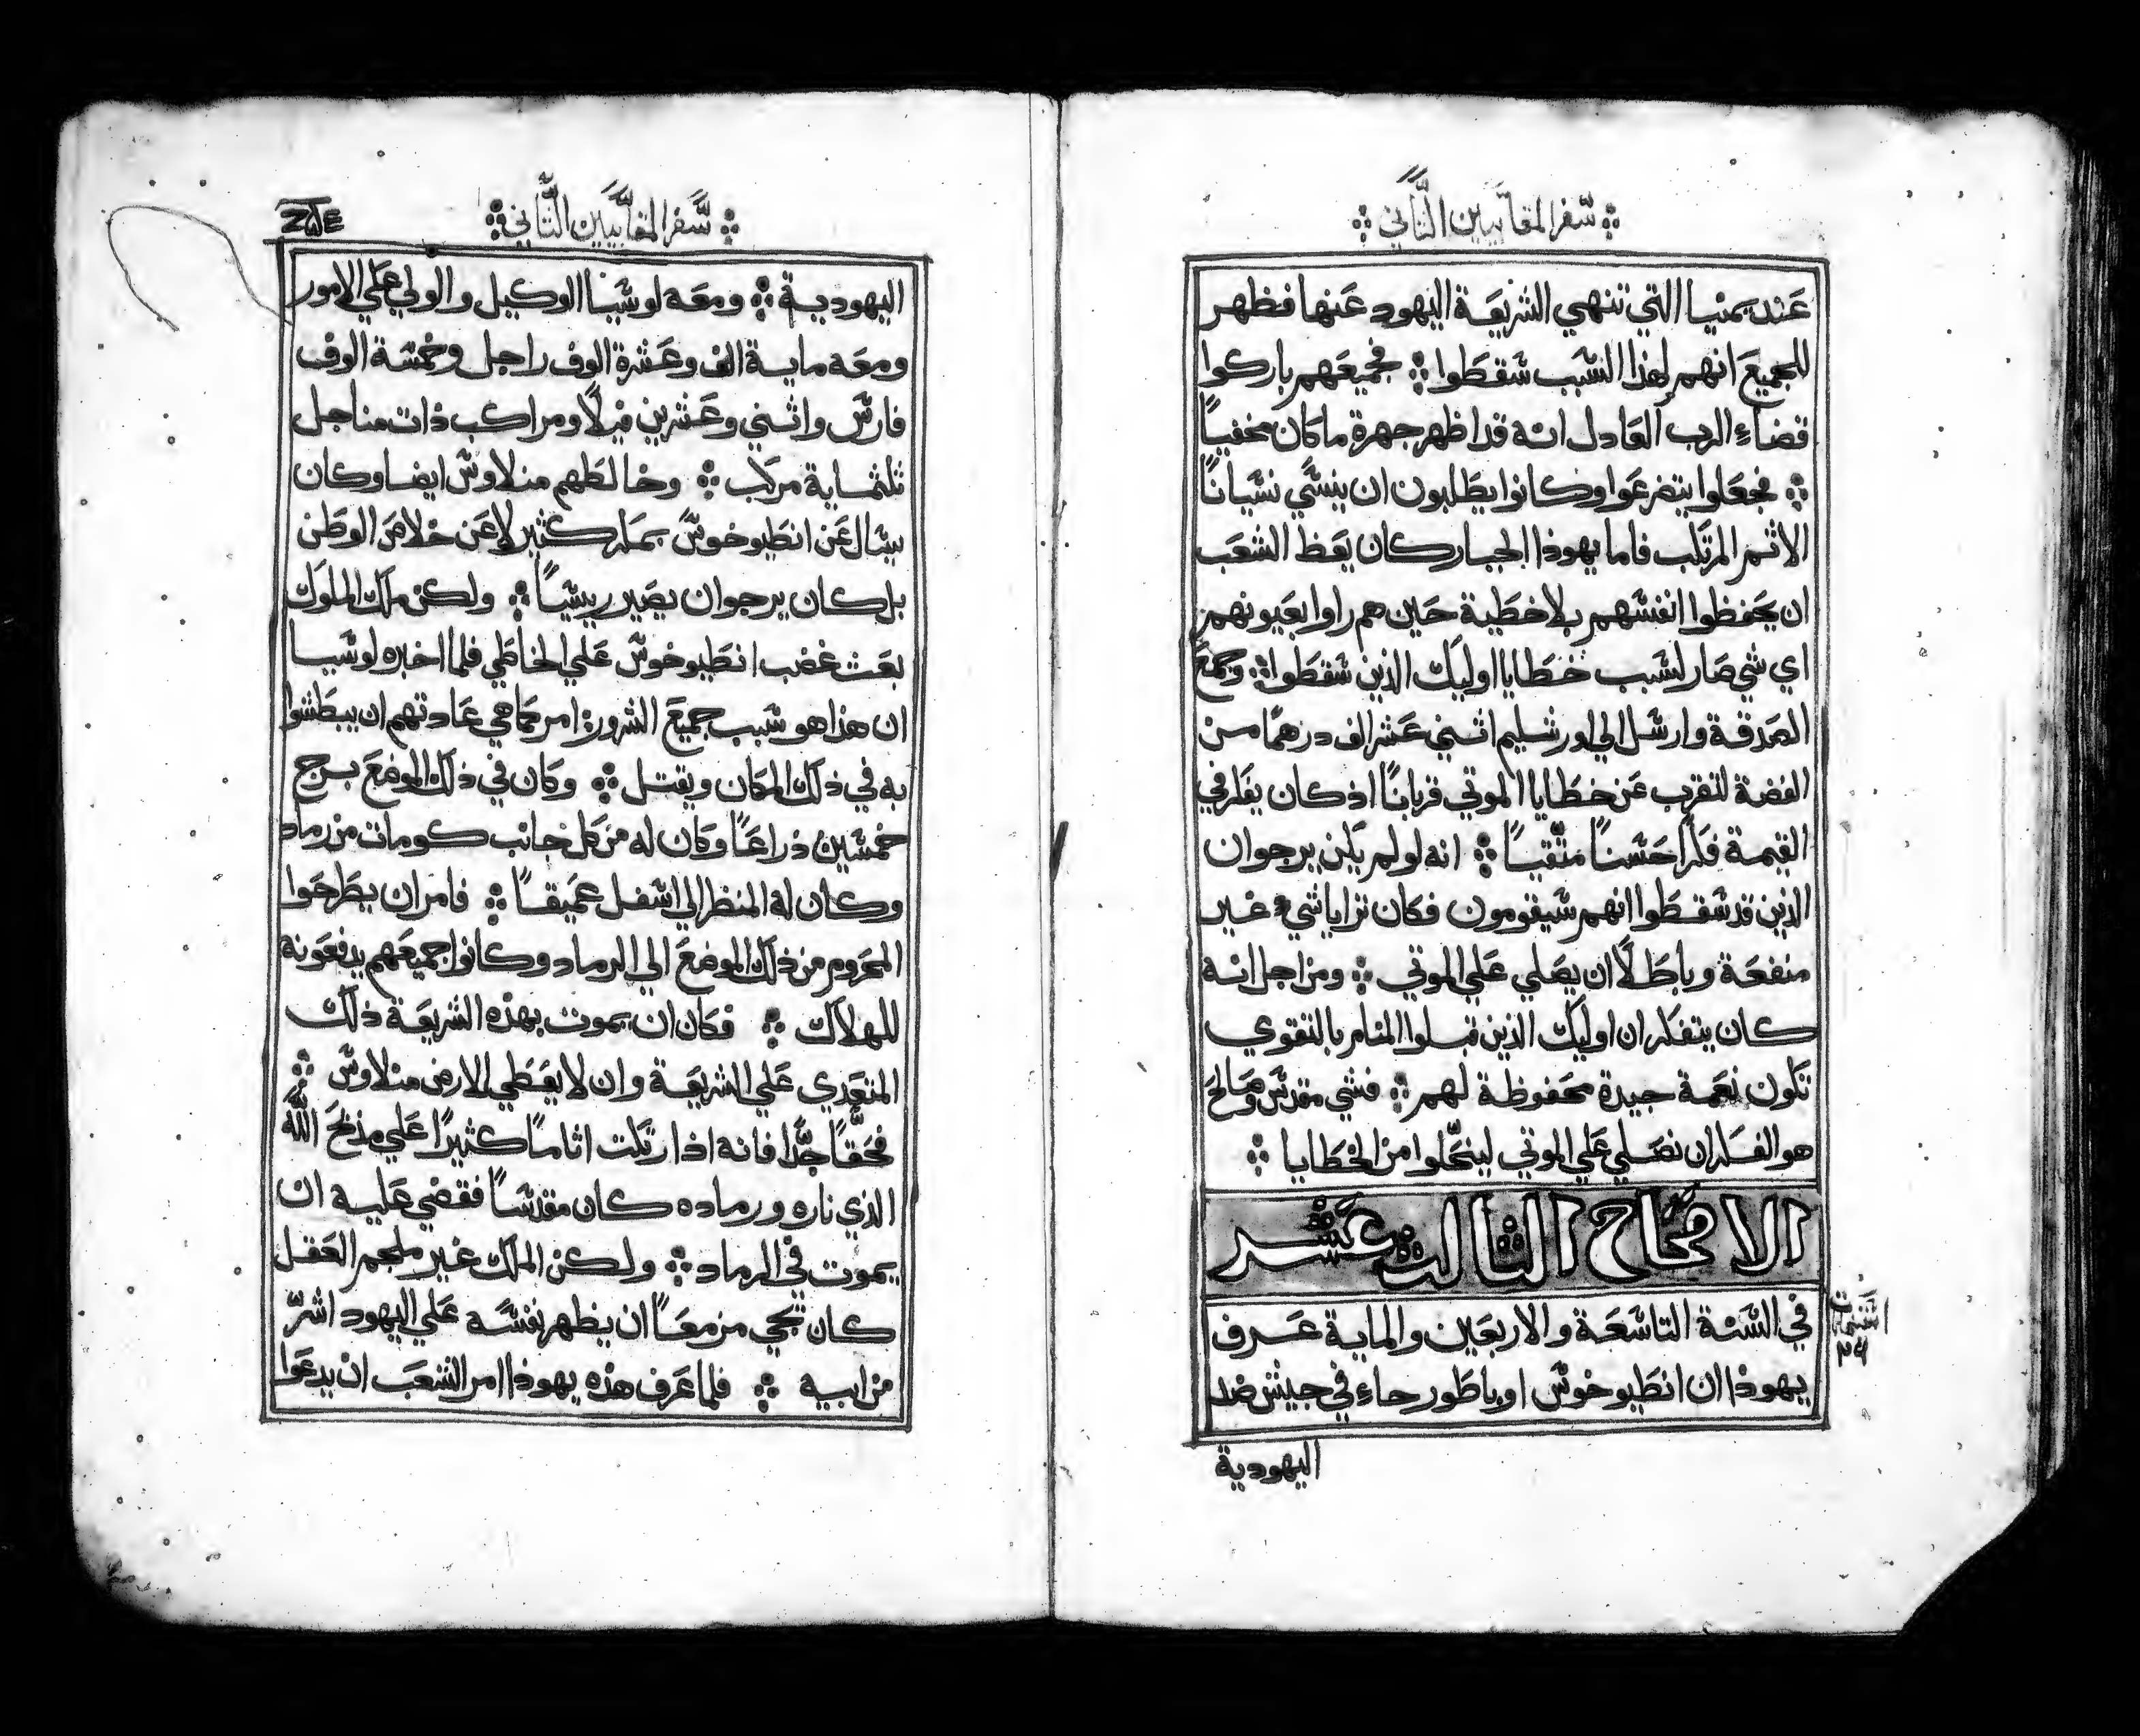 سفر المقابيين الثاني
عند يمنيا التي تنهي الشريعة اليهود عنها فظهر
للجميع انهم لهذا السبب سقطوا ܀ فجميعهم باركوا
قضاء الرب العادل انه قد اظهر جهرة ما كان مخفيًا
܀ فجعلوا يتضرعوا وكانوا يطلبون ان ينسي نسيانًا
الاثم المرتكب فاما يهوذا الجبار كان يعظ الشعب
ان يحفظوا انفسهم بلا خطية حين هم راوا بعيونهم
اي شي صار لسبب خطايا اوليك الذين سقطوا ܀ وجمع
الصدقة وارسل الي اورشليم اثني عشر الف درهمًا من
الفضة لتقرب عن خطايا الموتي قربانًا اذ كان يفكر في
القيمة فكرًا حسنًا متقيًا ܀ انه لو لم يكن يرجوان
الذين قد سقطوا انهم سيقومون فكان تزايا شيء غير
منفعة وباطلًا ان يصلي علي الموتي ܀ ومن اجل انه
كان يتفكر ان اوليك الذين قبلوا المنام بالتقوي
تكون نعمة جيدة محفوظة لهم ܀ فشي مقدس وصالح
هو الفكر ان نصلي علي الموتي لينحلوا من الخطايا ܀
الاصحاح الثالث عشر
في السنة التاسعة والاربعين والماية عرف
يهوذا ان انطيوخوس اوباطور جاء في جيش ضد
اليهودية
سفر المقابيين الثاني
اليهودية ܀ ومعه لوسيا الوكيل والولي علي الامور
ومعه ماية الف وعشرة الوف راجل وخمسة الوف
فارس واثني وعشرين فيلًا ومراكب ذات مناجل
ثلثماية مركب ܀ وخالطهم منلاوس ايضا وكان
يسال عن انطيوخوس بمكر كثير لا عن خلاص الوطن
بل كان يرجوان يصير رييسًا ܀ ولكن ملك الملوك
بعث غضب انطيوخوس علي الخاطي فلما اخبره لوسيا
ان هذا هو سبب جميع الشرور امر كما هي عادتهم ان يبطشوا
به في ذلك المكان ويقتل ܀ وكان في ذلك الموضع برج
خمسين ذراعًا وكان له من كل جانب كومات من رماد
وكان له المنظر الي اسفل عميقًا ܀ فامر ان يطرحوا
المحروم من ذلك الموضع الي الرماد وكانوا جميعهم يدفعونه
للهلاك ܀ فكان ان يموت بهذه الشريعة ذلك
المتعدي علي الشريعة وان لا يعطي للارض منلاوس ܀
فحقًا جدًا فانه اذ ارتكب اثامًا كثيرًا علي مذبح الله
الذي ناره ورماده كان مقدسًا فقضي عليه ان
يموت في الرماد ܀ ولكن الملك غير ملجم العقل
كان يجي مزمعًا ان يظهر نفسه علي اليهود اشر
من ابيه ܀ فلما عرف هذه يهوذا امر الشعب ان يدعوا